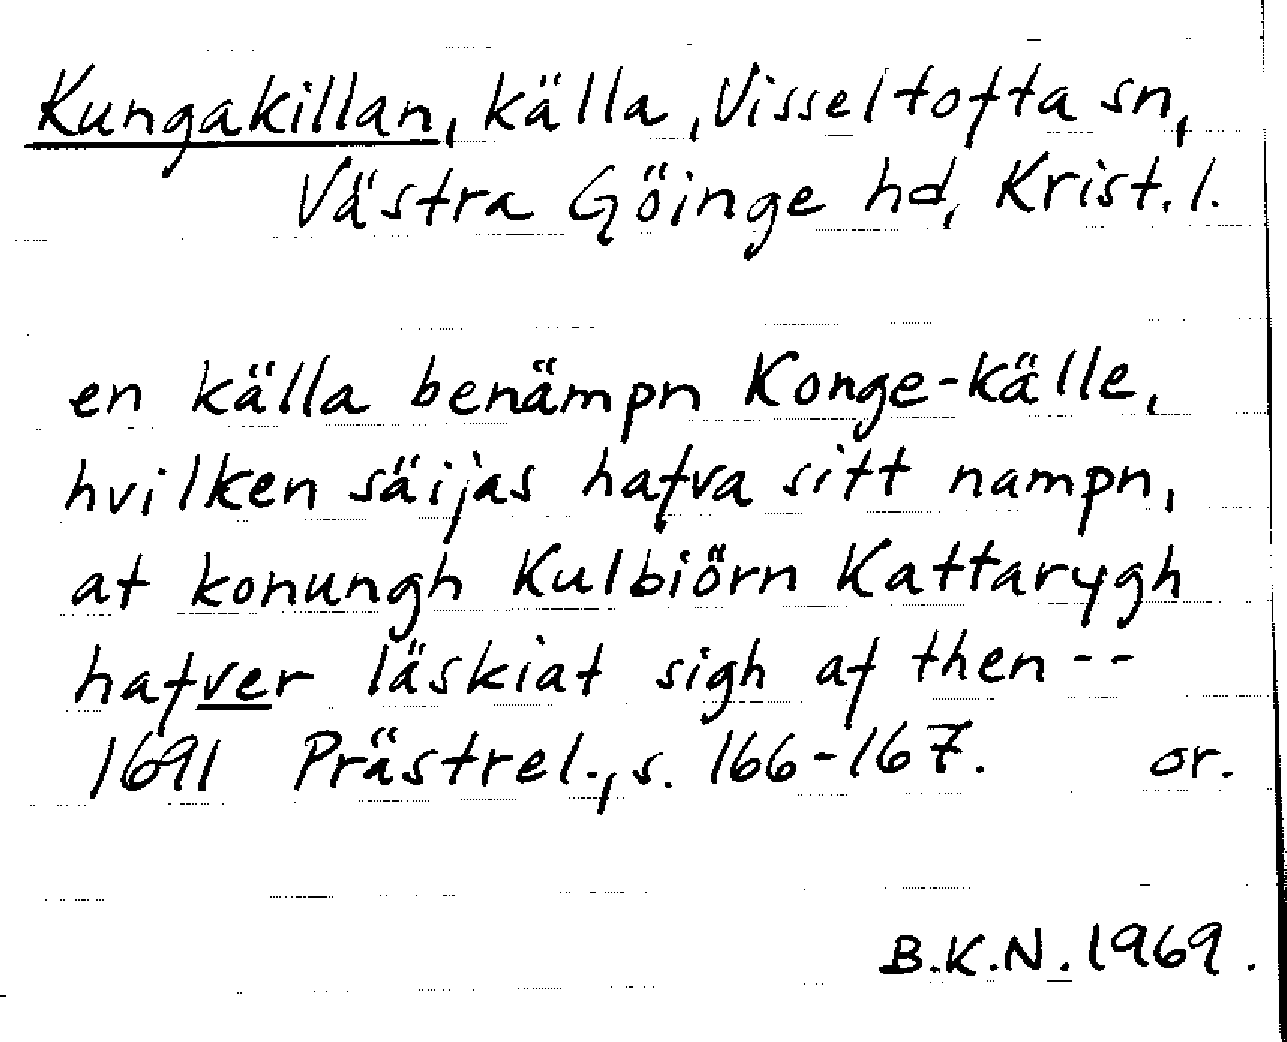 Kungakillan, källa, Visseltofta sn,
Västra Göinge hd, Krist. l.
en källa benämpn Konge-källe,
hvilken säijas hafva sitt nampn,
at konungh Kulbiörn Kattarygh
hafver läskiat sigh af then --
1691 Prästrel., s. 166-167. or.
B.K.N. 1969.